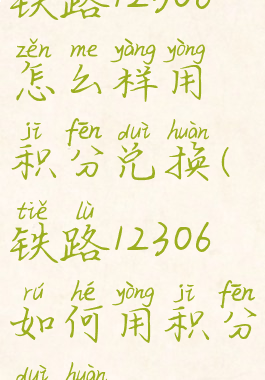 铁路12306
zěn me yàng yòng
怎么样用
jī fēn duì huàn
积分兑换(
tiě lù
铁路12306
rú hé yòng jī fēn
如何用积分
duì huàn